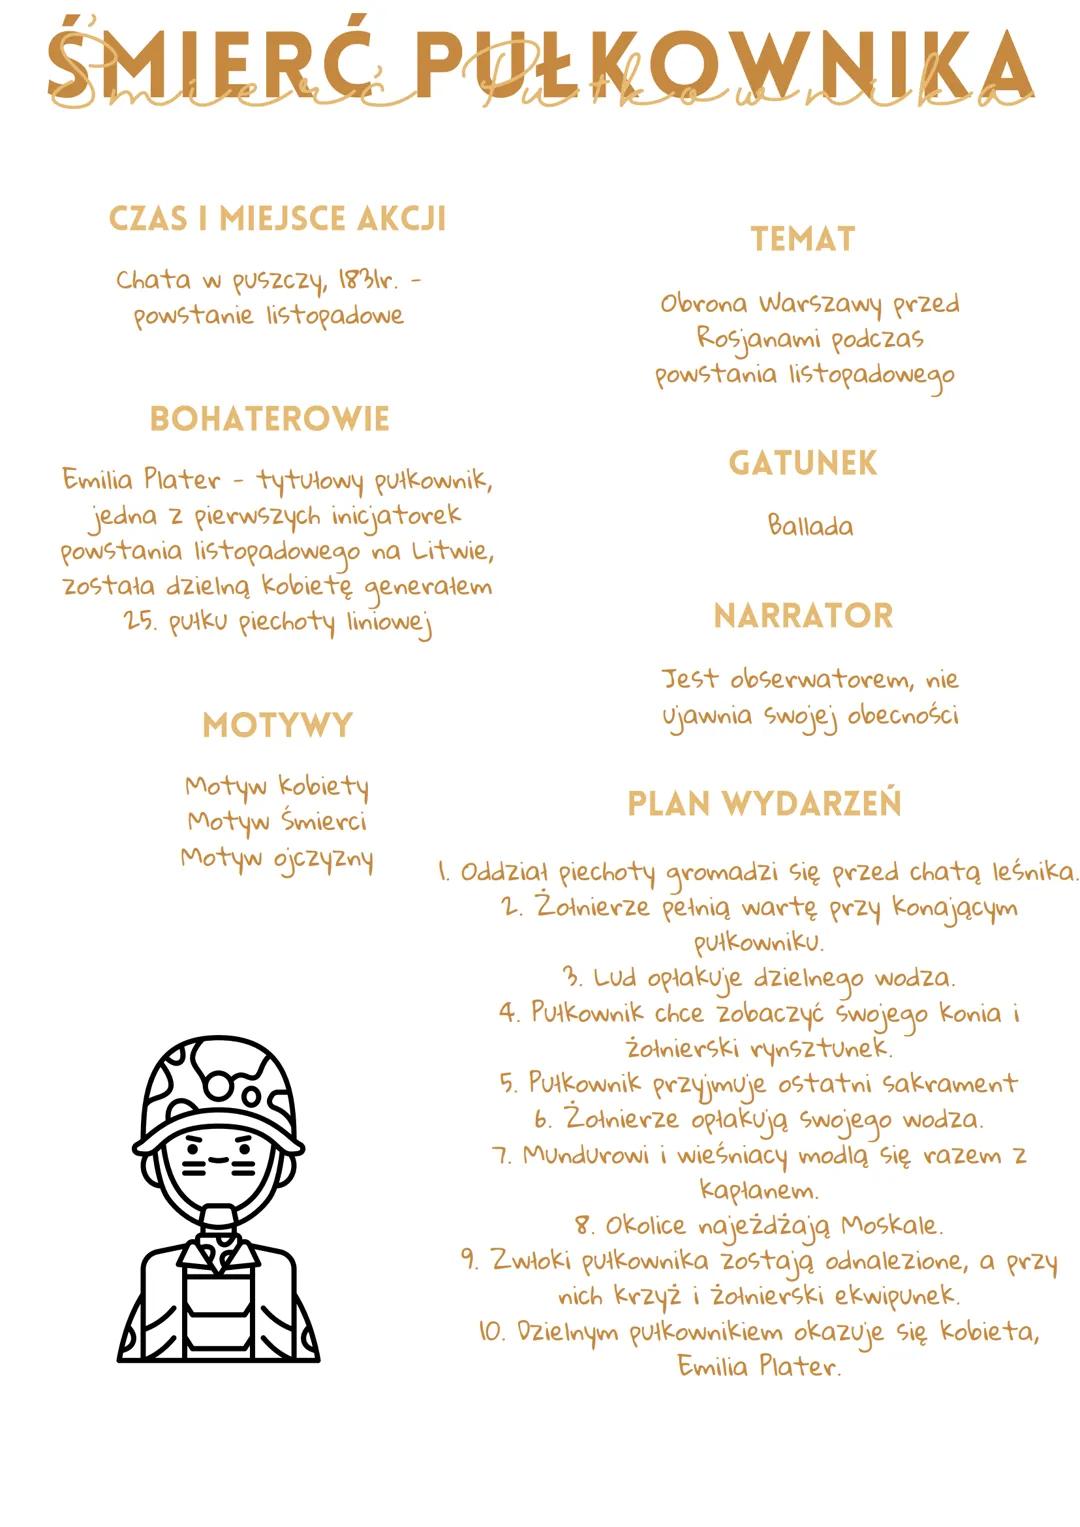 ŚMIERĆ PUŁKOWNIKA
Śmierć Pułkownika
CZAS I MIEJSCE AKCJI
Chata w puszczy, 1831r. -
powstanie listopadowe
BOHATEROWIE
Emilia Plater - tytułowy pułkownik,
jedna z pierwszych inicjatorek
powstania listopadowego na Litwie,
została dzielną kobietę generałem
25. pułku piechoty liniowej
MOTYWY
Motyw kobiety
Motyw śmierci
Motyw ojczyzny
TEMAT
Obrona Warszawy przed
Rosjanami podczas
powstania listopadowego
GATUNEK
Ballada
NARRATOR
Jest obserwatorem, nie
ujawnia swojej obecności
PLAN WYDARZEŃ
1. Oddział piechoty gromadzi się przed chatą leśnika.
2. Żołnierze pełnią wartę przy konającym
pułkowniku.
3. Lud opłakuje dzielnego wodza.
4. Pułkownik chce zobaczyć swojego konia i
żołnierski rynsztunek.
5. Pułkownik przyjmuje ostatni sakrament
6. Żołnierze opłakują swojego wodza.
7. Mundurowi i wieśniacy modlą się razem z
kapłanem.
8. Okolice najeżdżają Moskale.
9. Zwłoki pułkownika zostają odnalezione, a przy
nich krzyż i żołnierski ekwipunek.
10. Dzielnym pułkownikiem okazuje się kobieta,
Emilia Plater.